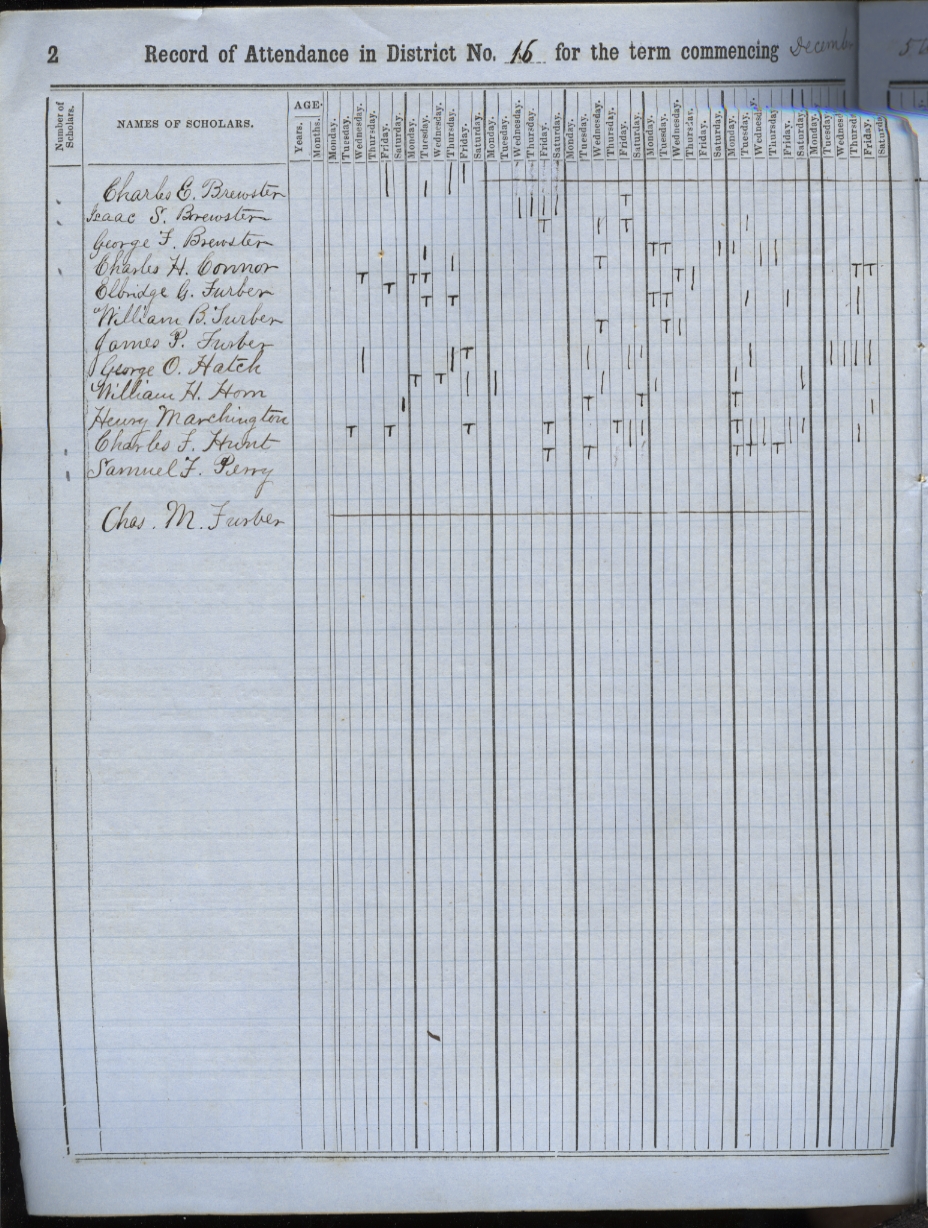 2 Record of Attendance in District No. 16 for the term commencing Decemb
Number of Scholars.
NAMES OF SCHOLARS.
AGE.
Years. Months. Monday. Tuesday. Wednesday. Thursday. Friday. Saturday. Monday. Tuesday. Wednesday. Thursday. Friday. Saturday. Monday. Tuesday. Wednesday. Thursday. Friday. Saturday. Monday. Tuesday. Wednesday. Thursday. Friday. Saturday. Monday. Tuesday. Wednesday. Thursday. Friday. Saturday. Monday. Tuesday. Wednesday. Thursday. Friday. Saturday. Monday. Tuesday. Wednes Thursd Friday. Saturda
Charles E. Brewster
Isaac S. Brewster
George F. Brewster
Charles H. Connor
Elbridge G. Furber
William B. Furber
James P. Furber
George O. Hatch
William H. Horn
Henry Marchington
Charles F. Hunt
Samuel F. Perry
Chas. M. Furber